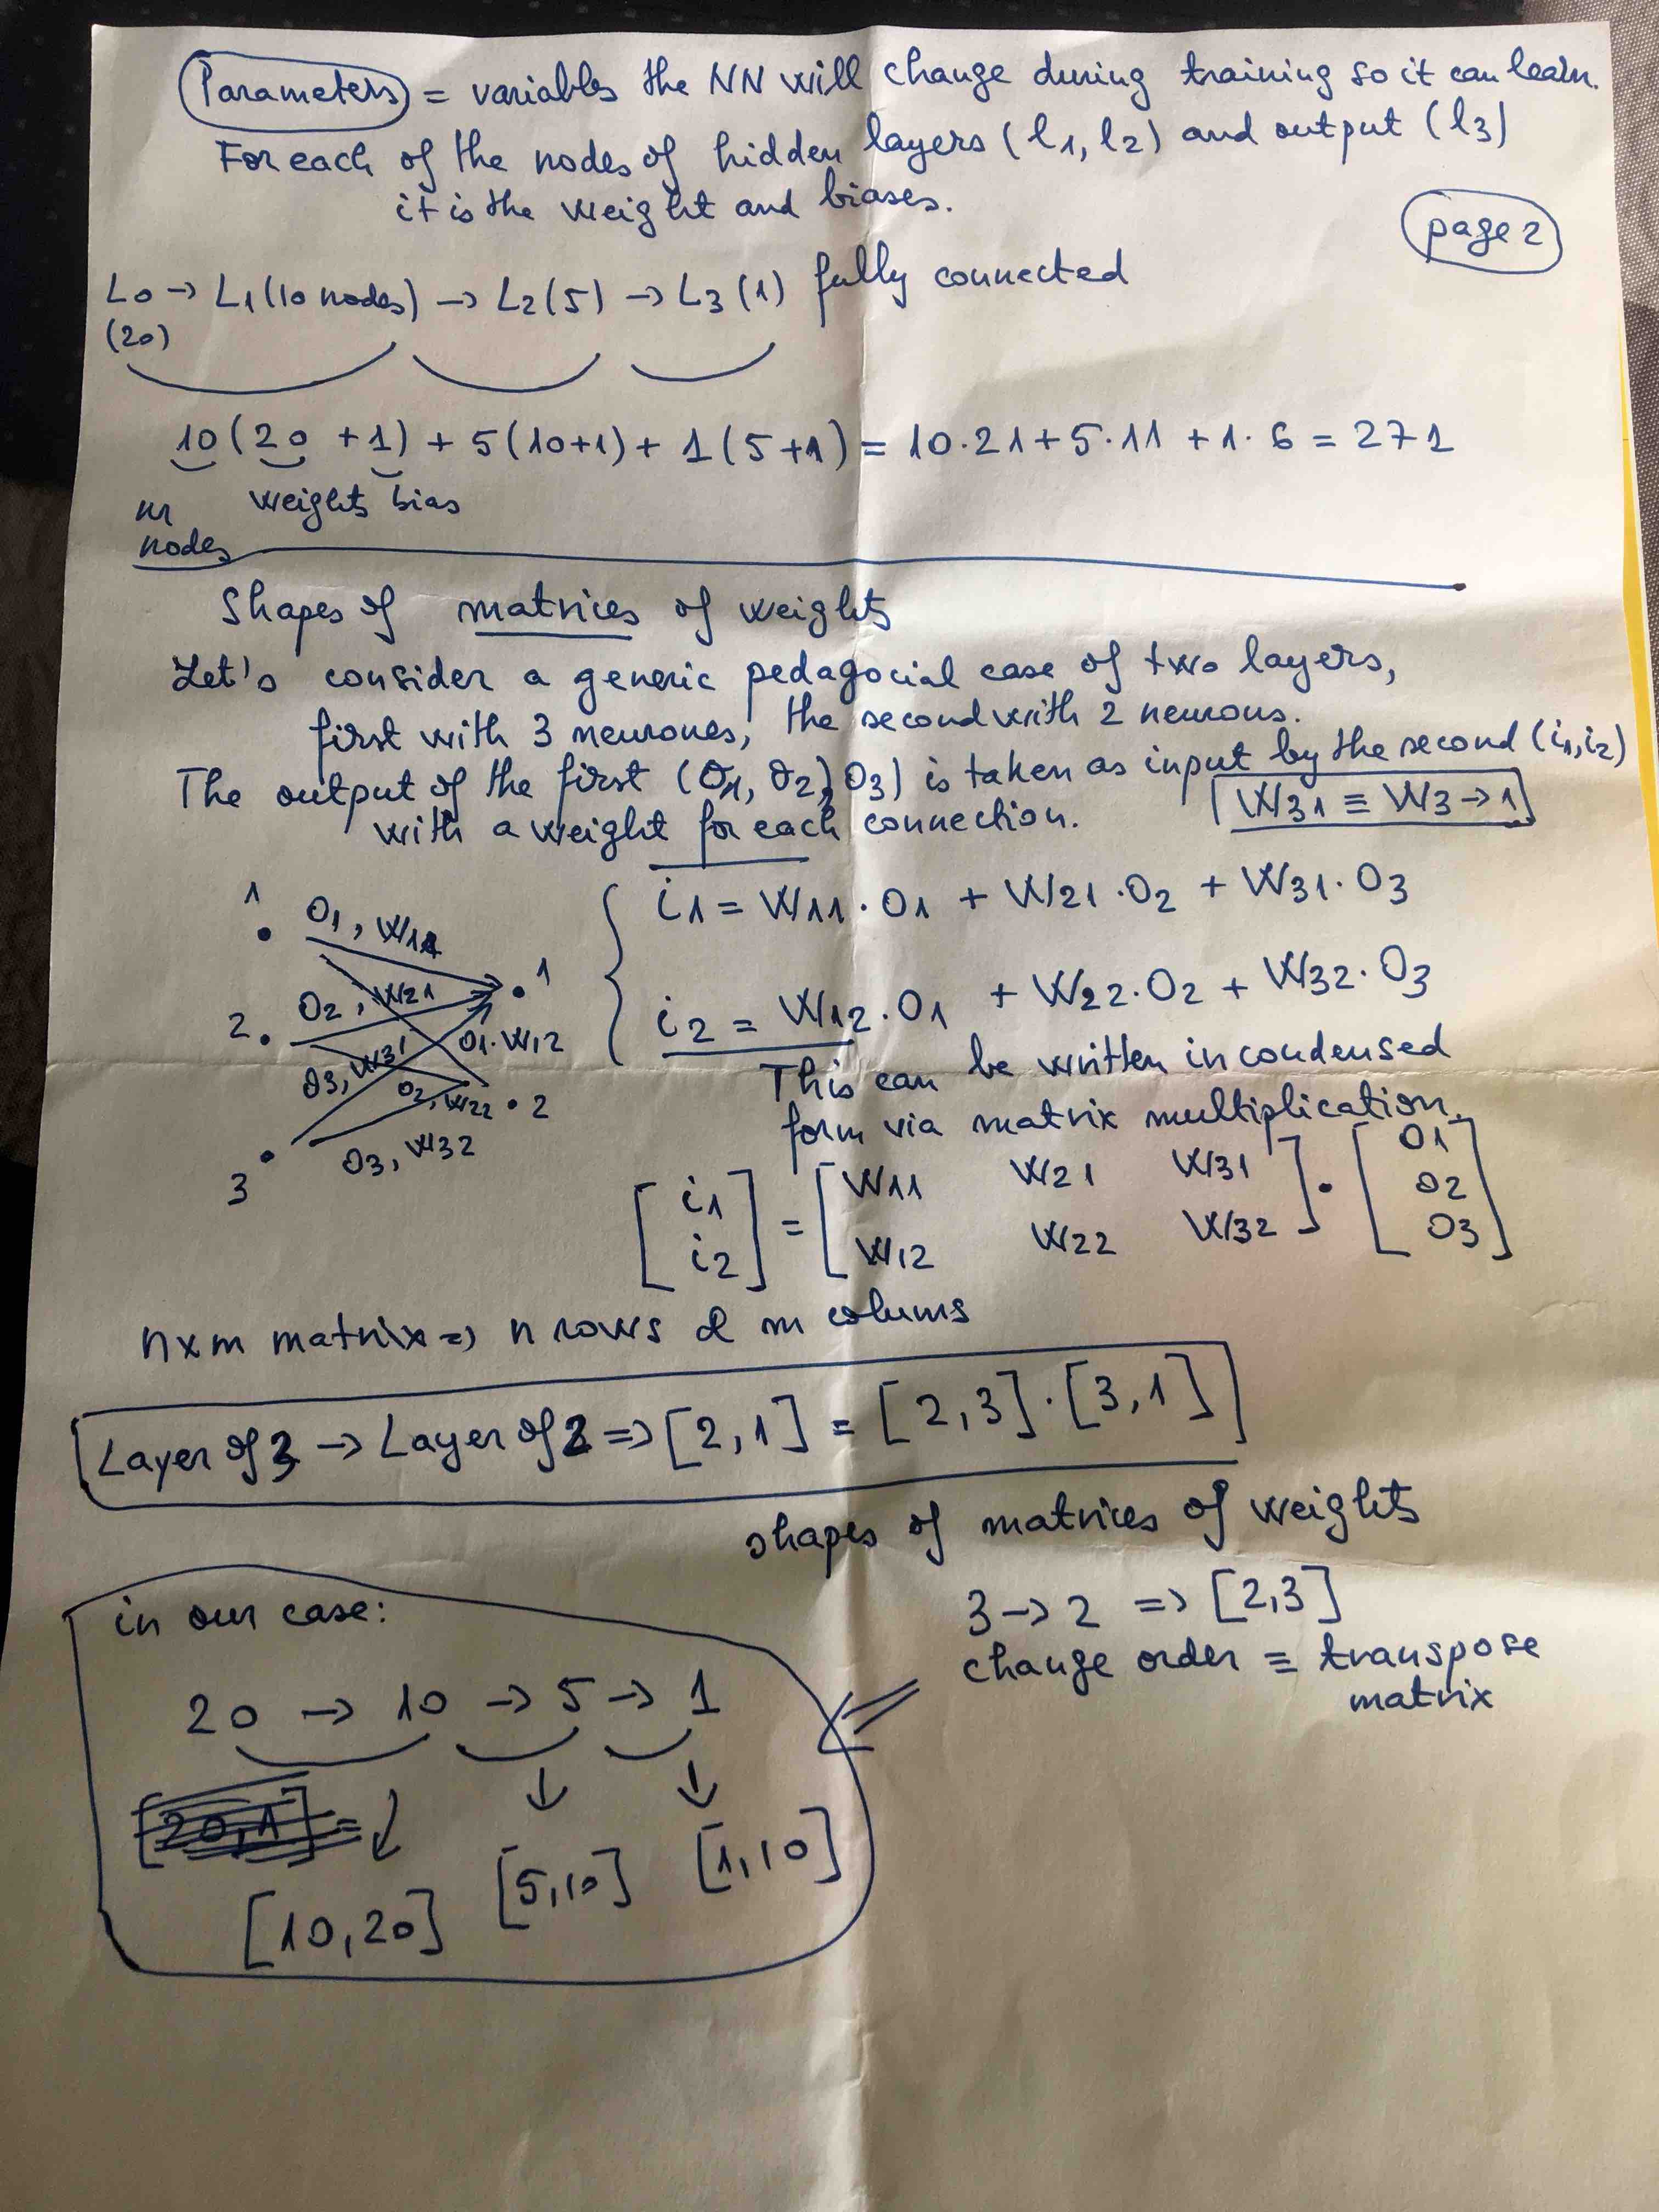 Parameters = variables the NN will change during training so it can learn.
For each of the nodes of hidden layers (l1, l2) and output (l3)
it is the weight and biases.
page 2
L0 -> L1 (10 nodes) -> L2 (5) -> L3 (1) fully connected
(20)
10 (20 + 1) + 5 (10+1) + 1 (5+1) = 10·21 + 5·11 + 1·6 = 271
m weights bias
nodes
Shapes of matrices of weights
Let's consider a generic pedagocial case of two layers,
first with 3 neurones, the second with 2 neurons.
The output of the first (O1, O2, O3) is taken as input by the second (i1, i2)
with a weight for each connection. W31 ≡ W3->1
1
O1, W11
i1 = W11·O1 + W21·O2 + W31·O3
1
O2, W21
2
O1·W12
i2 = W12·O1 + W22·O2 + W32·O3
O3, W31
O2, W22 2
This can be written in condensed
form via matrix multiplication.
O3, W32
3
[i1] = [W11 W21 W31] · [O1
i2 W12 W22 W32 O2
O3]
nxm matrix => n rows & m colums
Layer of 3 -> Layer of 2 => [2,1] = [2,3]·[3,1]
shapes of matrices of weights
in our case:
3 -> 2 => [2,3]
change order ≡ transpose
matrix
20 -> 10 -> 5 -> 1
[20,1] =
[10,20] [5,10] [1,10]